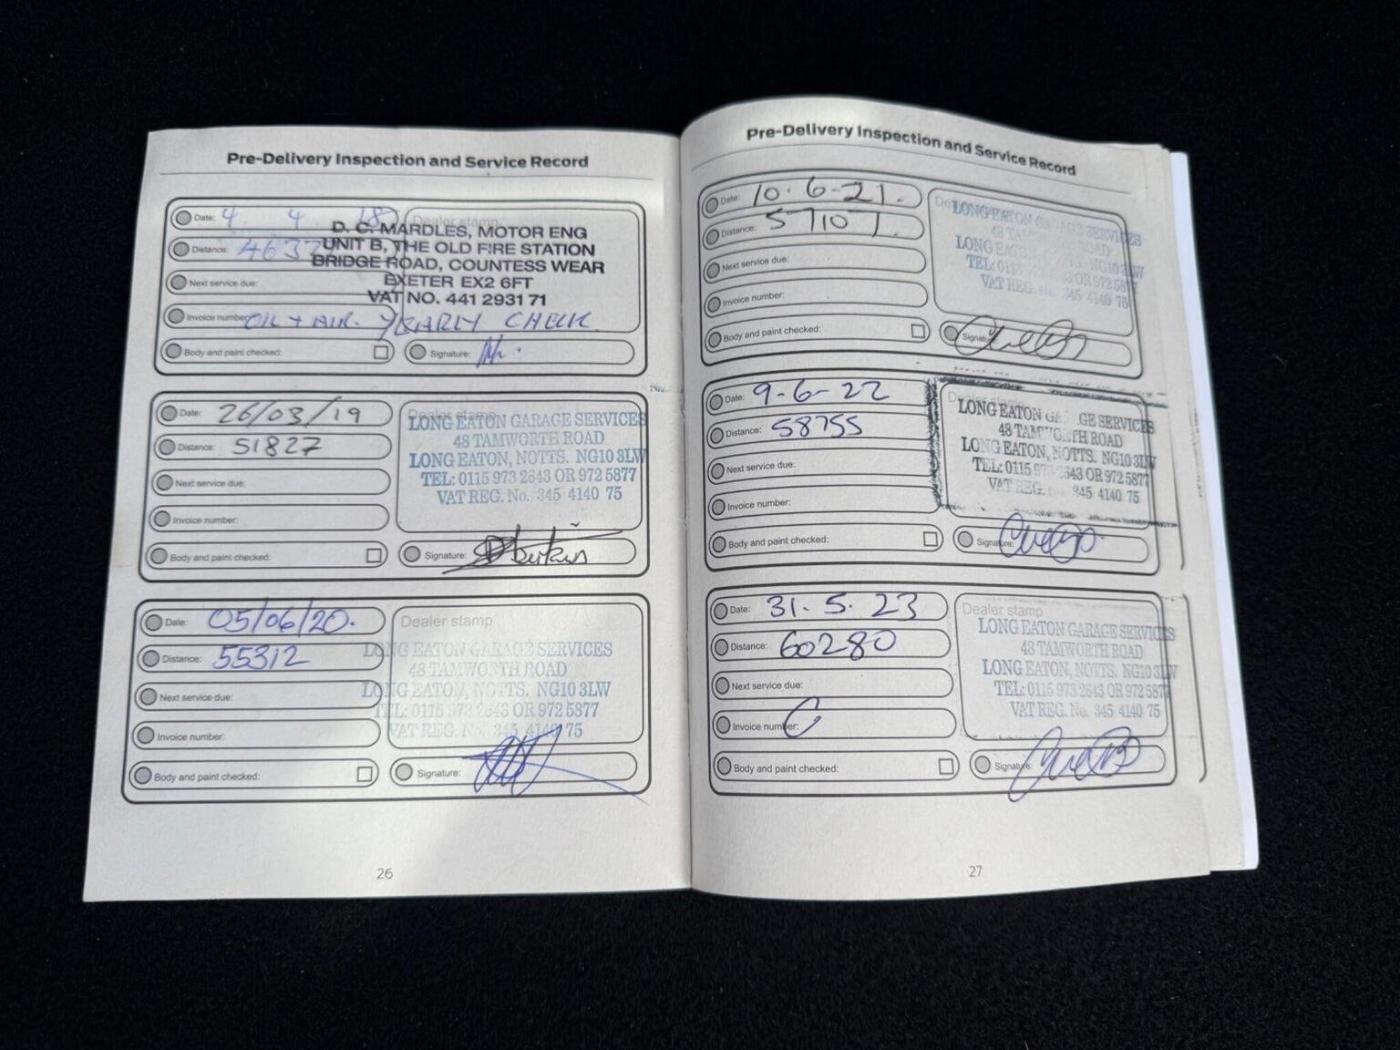 Pre-Delivery Inspection and Service Record
Date: 4 4 18
Dealer stamp
D. C. MARDLES, MOTOR ENG
Distance:
UNIT B, THE OLD FIRE STATION
BRIDGE ROAD, COUNTESS WEAR
Next service due:
EXETER EX2 6FT
VAT NO. 441 2931 71
Invoice number: OIL + AIR. YEARLY CHECK
Body and paint checked:
Signature:
Date: 26/03/19
Dealer stamp
LONG EATON GARAGE SERVICES
48 TAMWORTH ROAD
Distance: 51827
LONG EATON, NOTTS. NG10 3LW
TEL: 0115 973 2643 OR 972 5877
Next service due:
VAT REG. No. 345 4140 75
Invoice number:
Body and paint checked:
Signature:
Date: 05/06/20.
Dealer stamp
Distance: 55312
LONG EATON GARAGE SERVICES
48 TAMWORTH ROAD
Next service due:
LONG EATON, NOTTS. NG10 3LW
TEL: 0115 973 2643 OR 972 5877
Invoice number:
VAT REG. No. 345 4140 75
Body and paint checked:
Signature:
26
Pre-Delivery Inspection and Service Record
Date: 10.6-21.
LONG EATON GARAGE SERVICES
Distance: 57107
48 ROAD
LONG NG10 3LW
Next service due:
TEL: 0115
VAT REG. 345 4140 75
Invoice number:
Body and paint checked:
Signature:
Date: 9-6-22
LONG EATON GARAGE SERVICES
Distance: 58755
48 TAMWORTH ROAD
LONG EATON, NOTTS. NG10 3LW
Next service due:
TEL: 0115 2643 OR 972 5877
VAT REG. 345 4140 75
Invoice number:
Body and paint checked:
Signature:
Date: 31.5.23
Dealer stamp
LONG EATON GARAGE SERVICES
Distance: 60280
48 TAMWORTH ROAD
LONG EATON, NOTTS. NG10 3LW
Next service due:
TEL: 0115 973 2643 OR 972 5877
VAT REG. No. 345 4140 75
Invoice number:
Body and paint checked:
Signature:
27